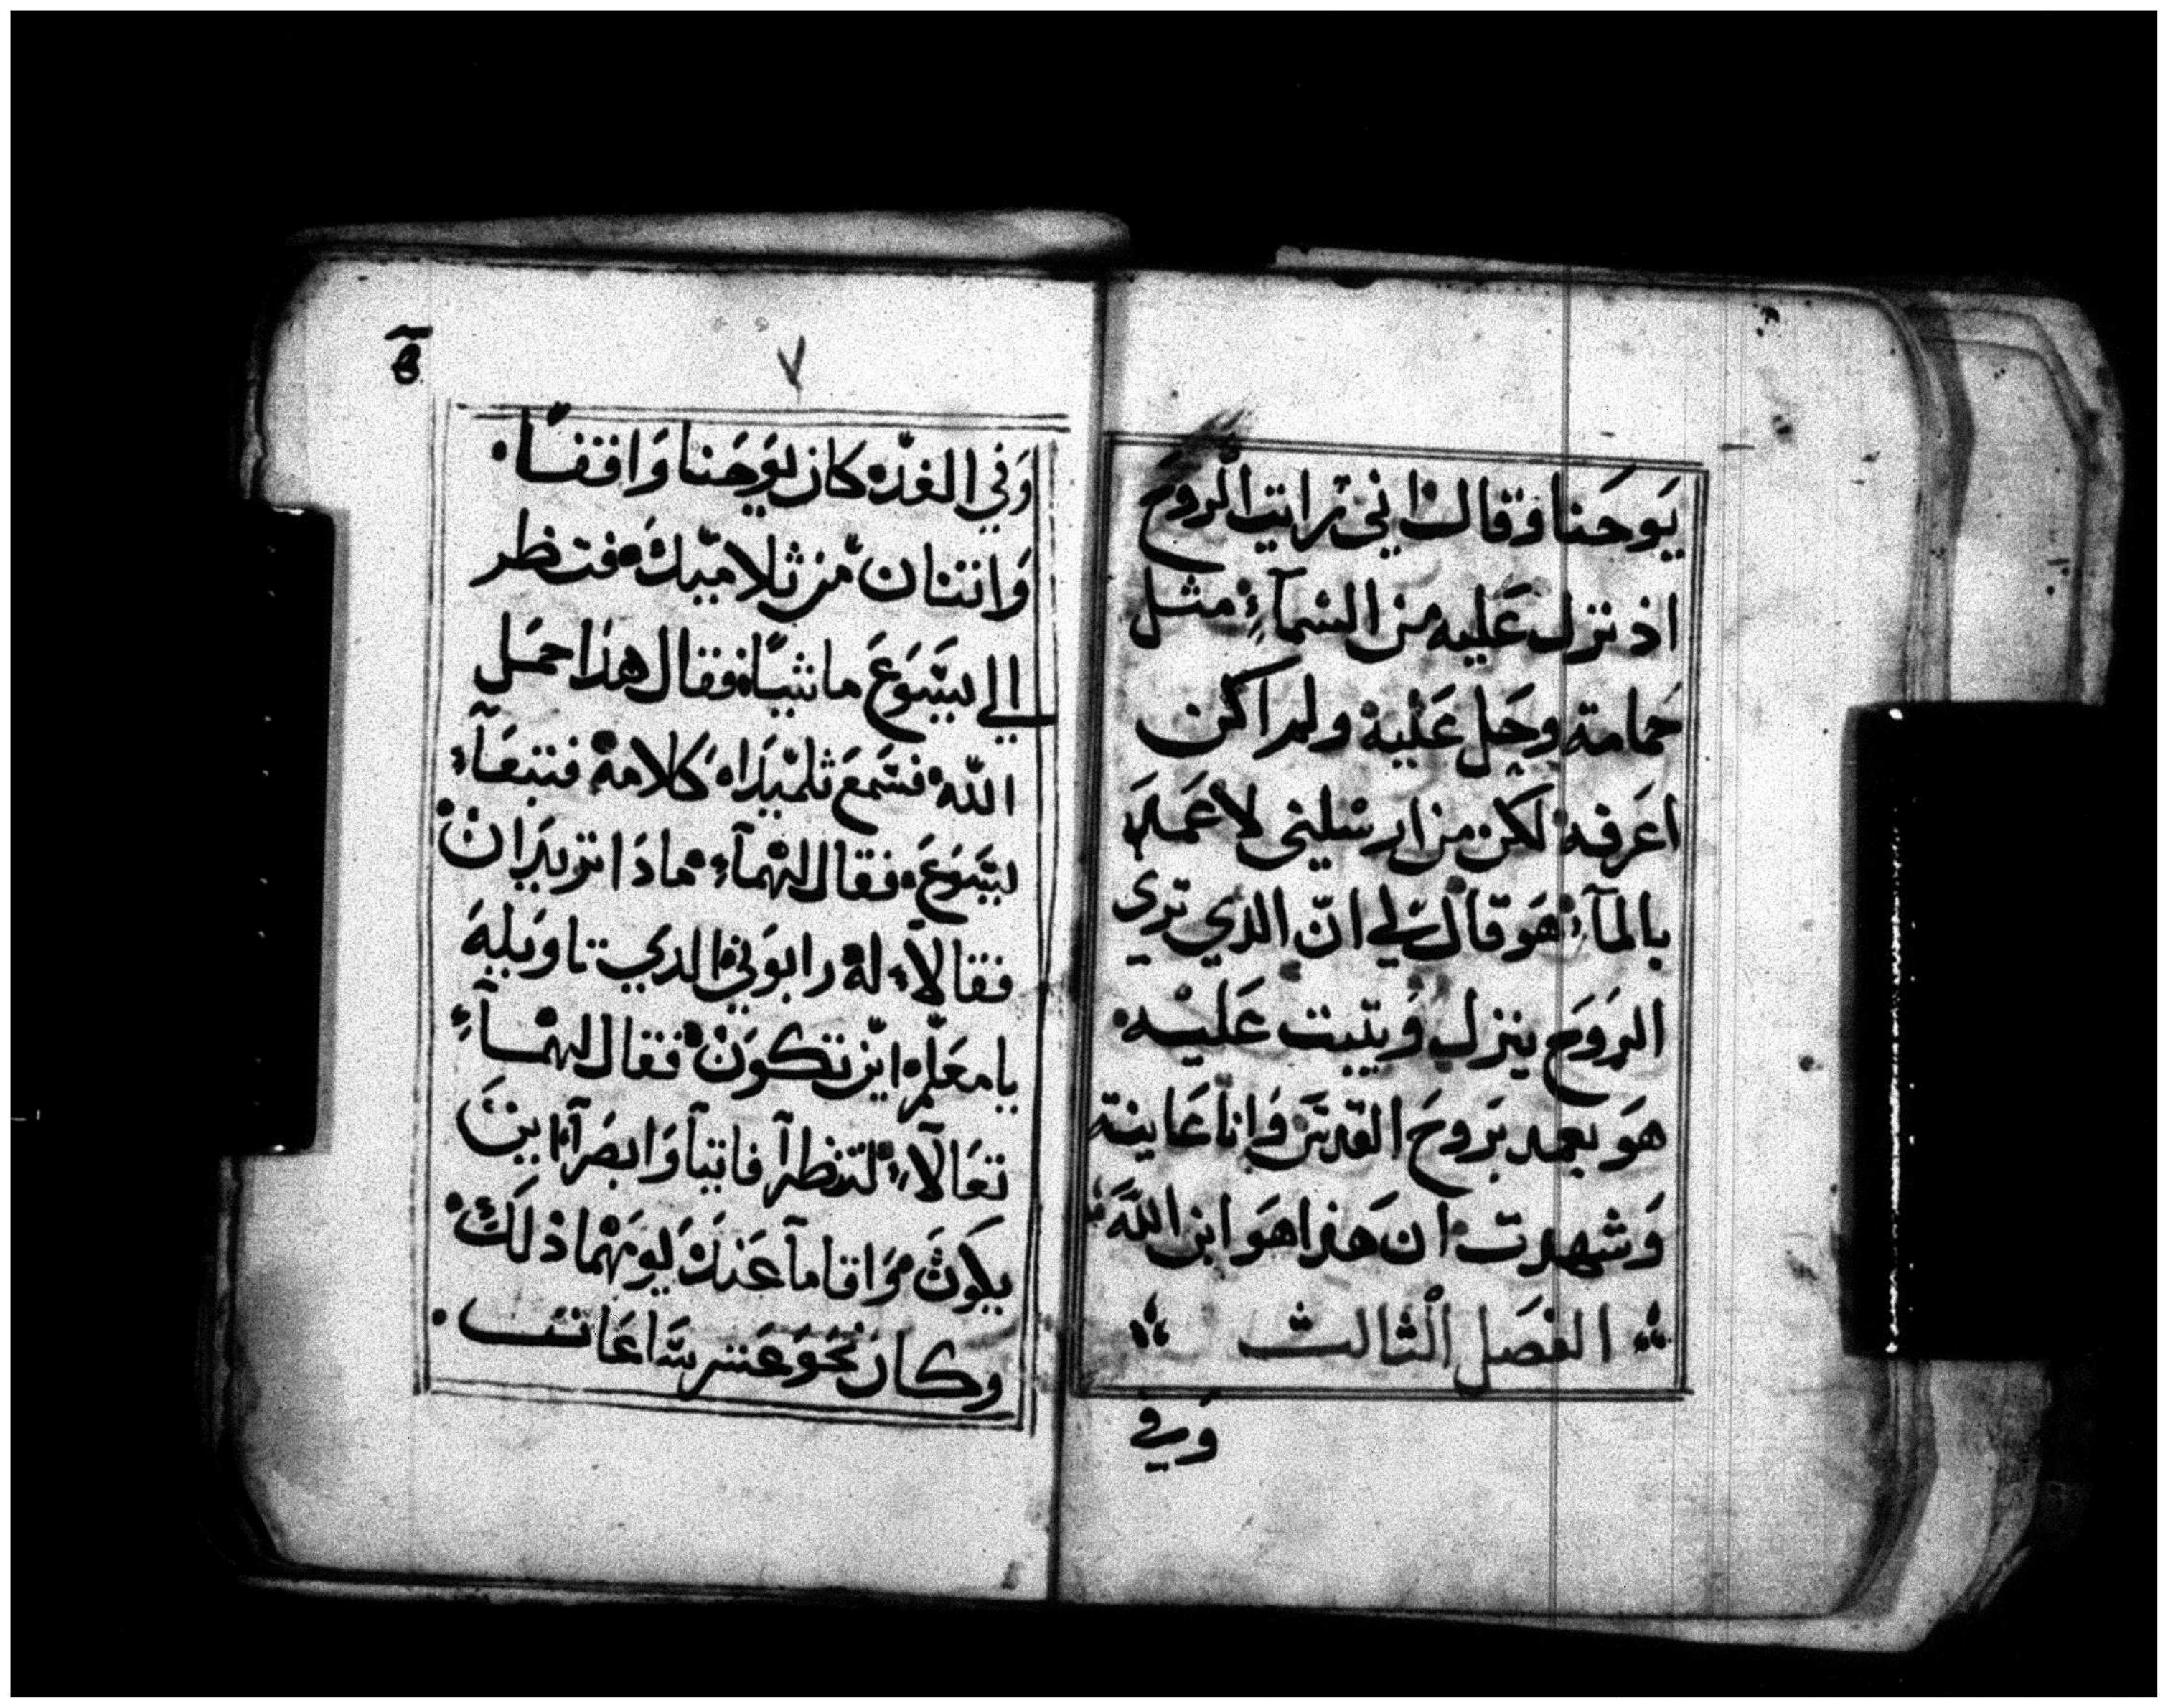 يَوحَنا وَقال اني رايت الروح
اذ نزل عَليه من السَمآءِ مثل
حَمامة وحَل عَليهْ ولم اكن
اعَرفهْ لكن من ارسَلني لاعَمَد
بالمآءِ هَو قال لي انّ الذي تري
الرَوَح ينزل وَيثبت عَليْه
هَو يعمد بَروحَ القدسَ وَانا عَاينته
وَشهدت ان هَذا هَو ابن اللَه
الفصَل الثالث
وَفي
ⲋ
٧
وَفي الغدْ كان يَوحَنا وَاقفاً
وَاثنان من تلاميدَهْ فنظر
الي يسَوَعَ ماشيًا فقال هذَا حمَل
اللّه فسَمعَ تلميدَاه كَلامهْ فتبعَآءْ
ليسَوَعَ فقال لهمآءْ مادَا تريدَانْ
فقالاءْ لهْ رابوَني الدي تاويلهَ
يامعَلم اين تكوَنْ فقال لهمآءْ
تعَالآءْ لتنظرآ فاتيآ وَابصَرآ اينَ
يكَوَن وَاقامآ عَندَهْ يوَمهْما ذلَكْ
وكان نحَوَ عَشر سَاعَات